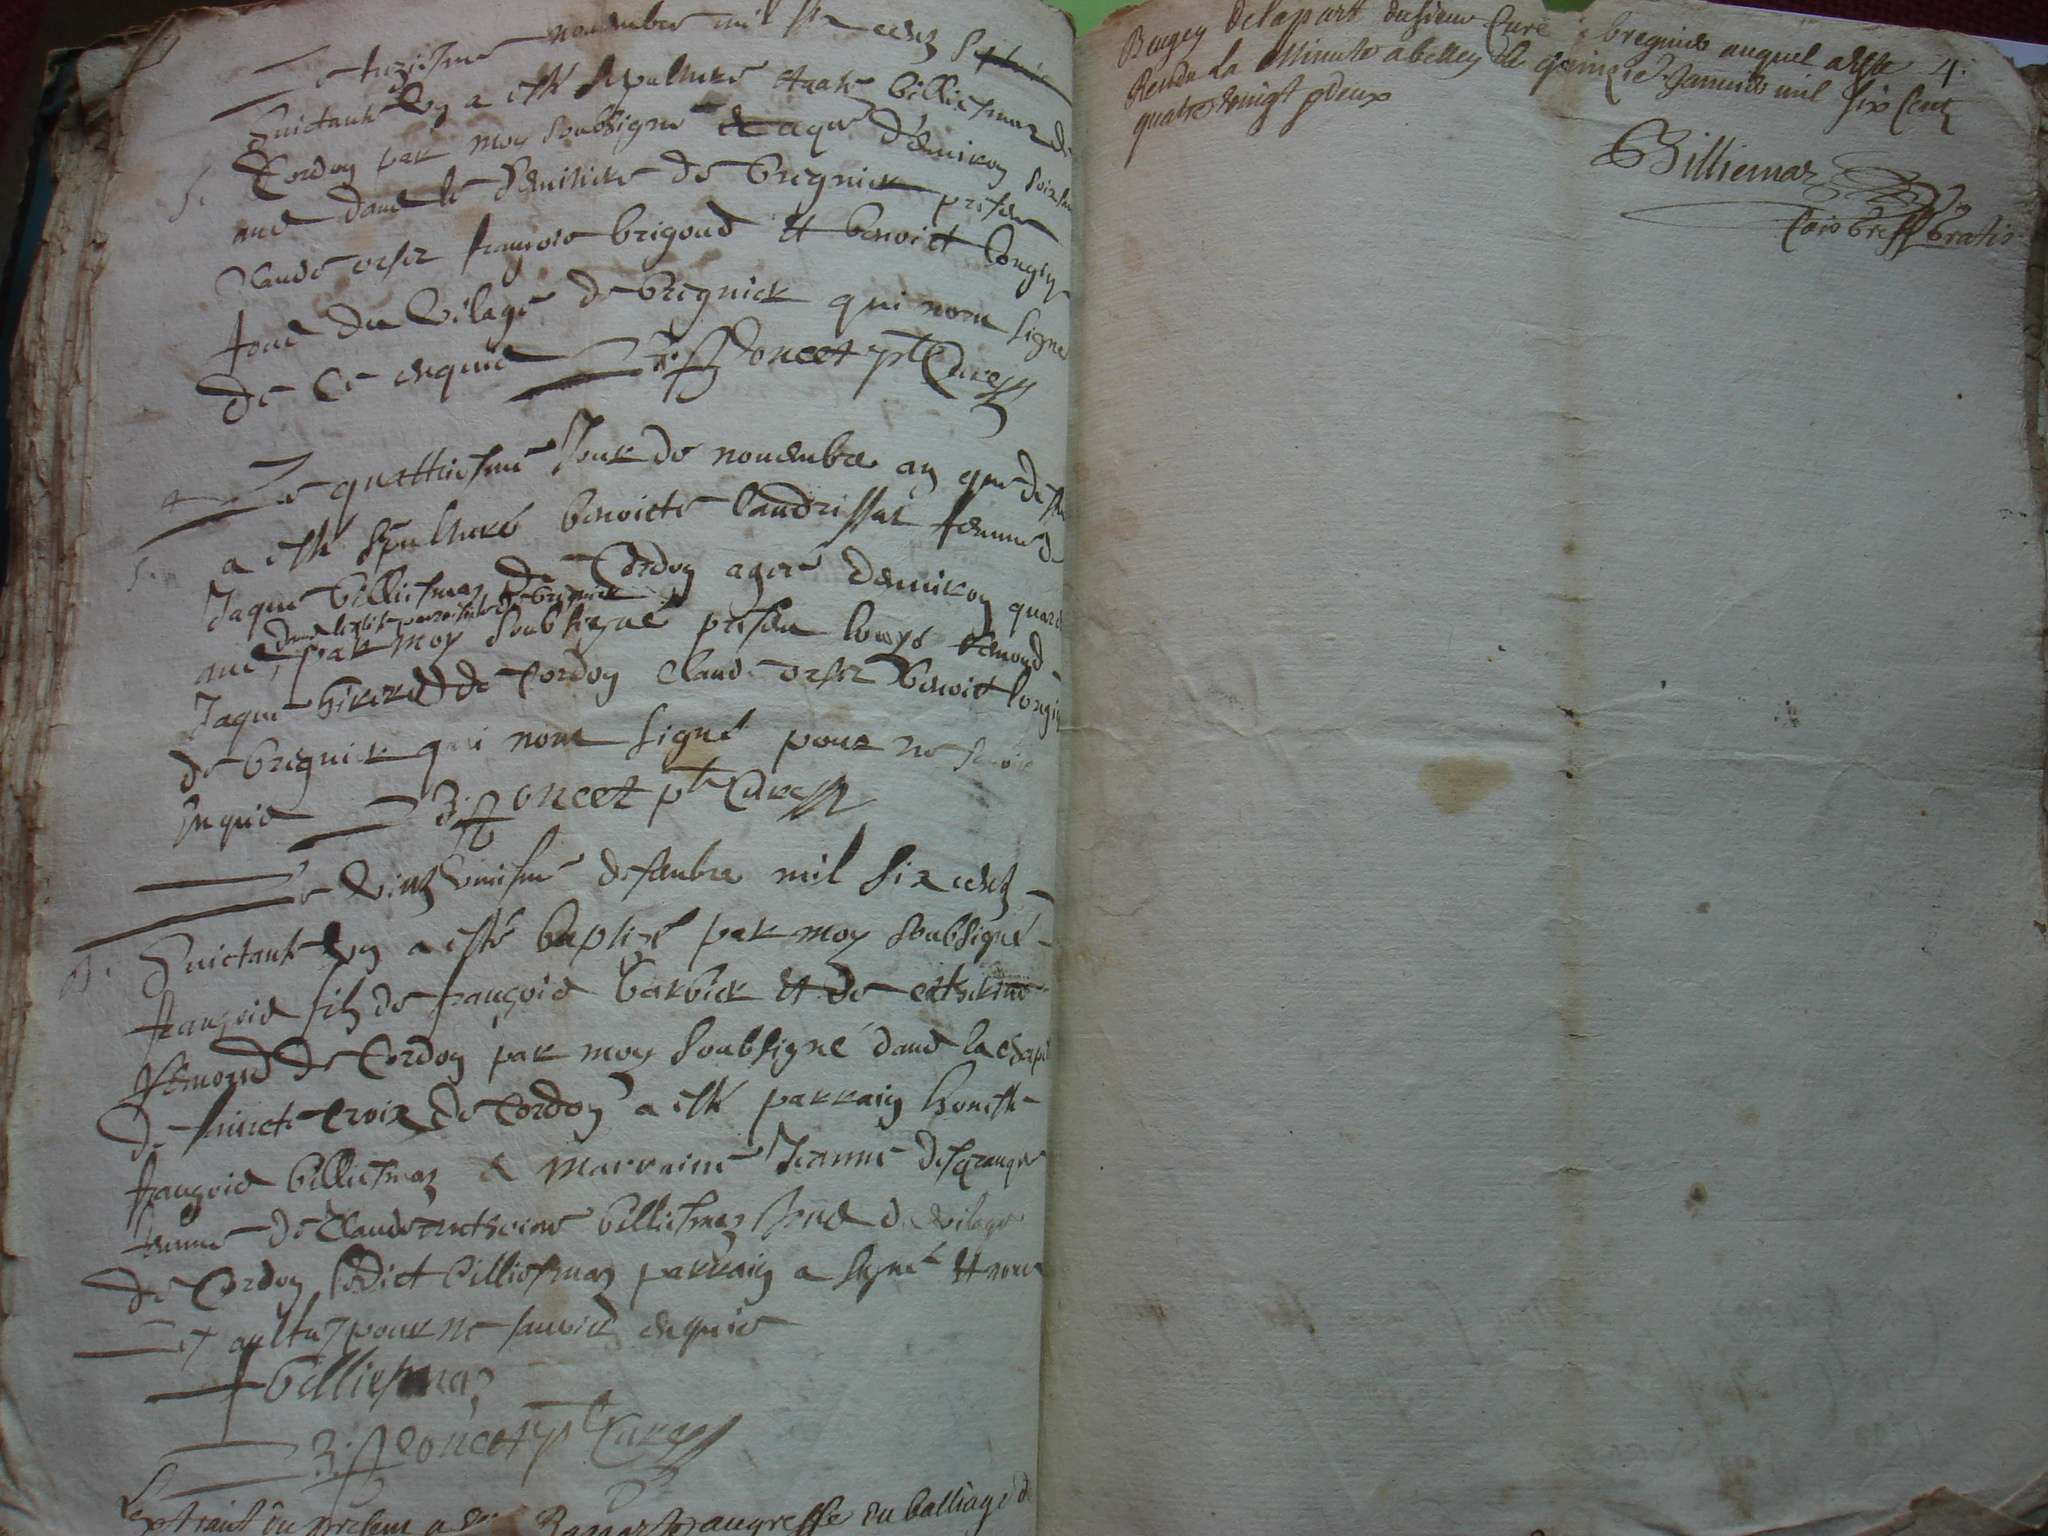 Le tiziesme novembre mil six centz septante
huictante ung a esté sepulturé Billiesmaz de
S. Cordon par moy soubsigné et agé d'environ soixante
ans dans le semitiere de Bregnier presen
Claude orset françois brigoud et benoict Longin
tous du vilage de Bregnier qui nont signé
de ce enquis Poncet pbre Curé
Le quattriesme Jour de novembre an que dessu
S. a esté sepulturé benoicte Caudrissat femme de
Jaque billiesmaz de Cordon agée denviron quara
dans leglise parroissielle de bregnier
ans par moy soubsigné presen Louys Semond
Jaque de Cordon Claude orset Benoict Longin
de bregnier qui nont signé pour ne scavoir
enquis Poncet pbre Curé
Le vingt huitiesme desambre mil six centz
B. huictante ung a esté baptizé par moy soubsigné
françois filz de françois barbier et de catherine
Semond de Cordon par moy soubsigné dans la chapel
de saincte Croix de Cordon a esté parrain honeste
françois billiesmaz & marraine Jeanne desgrange
femme de Claude anthoine billiesmaz tous du vilage
de Cordon ledict billiesmaz parrain a signé et non
les aultres pour ne scavoir enquis
f billiesmaz
Poncet pbre Curé
L'extraict du present a esté au greffe du balliage de
4.
Beugey de la part du sieur Curé de bregnier auquel a esté
Rendu la Minute a belley le quinzie Janvier mil six Cent
quatre vingt & deux
Billiemaz
Gratis